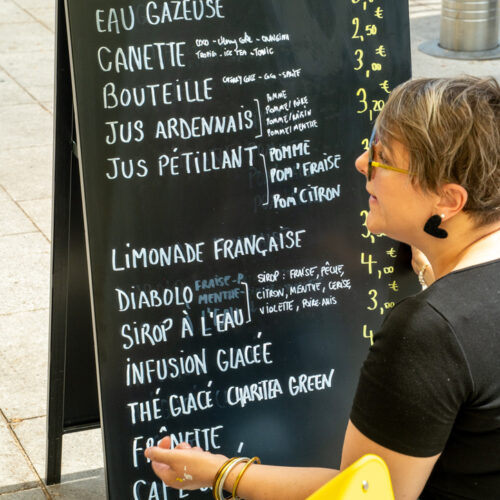 EAU GAZEUSE
CANETTE COCO - CHERRY COKE - ORANGINA
TROPICO - ICE TEA - TONIC
BOUTEILLE CHERRY COKE - COCA - SPRITE
JUS ARDENNAIS POMME
POMME/POIRE
POMME/RAISIN
POMME/MENTHE
JUS PÉTILLANT POMME
POM'FRAISE
POM'CITRON
LIMONADE FRANÇAISE
DIABOLO FRAISE-P
MENTHE
SIROP À L'EAU
SIROP : FRAISE, PÊCHE,
CITRON, MENTHE, CERISE
VIOLETTE, POIRE-ANIS
INFUSION GLACÉE
THÉ GLACÉ CHARITEA GREEN
FRÊNETTE
2,50
3,00
3,20
3,
4,
3,
4